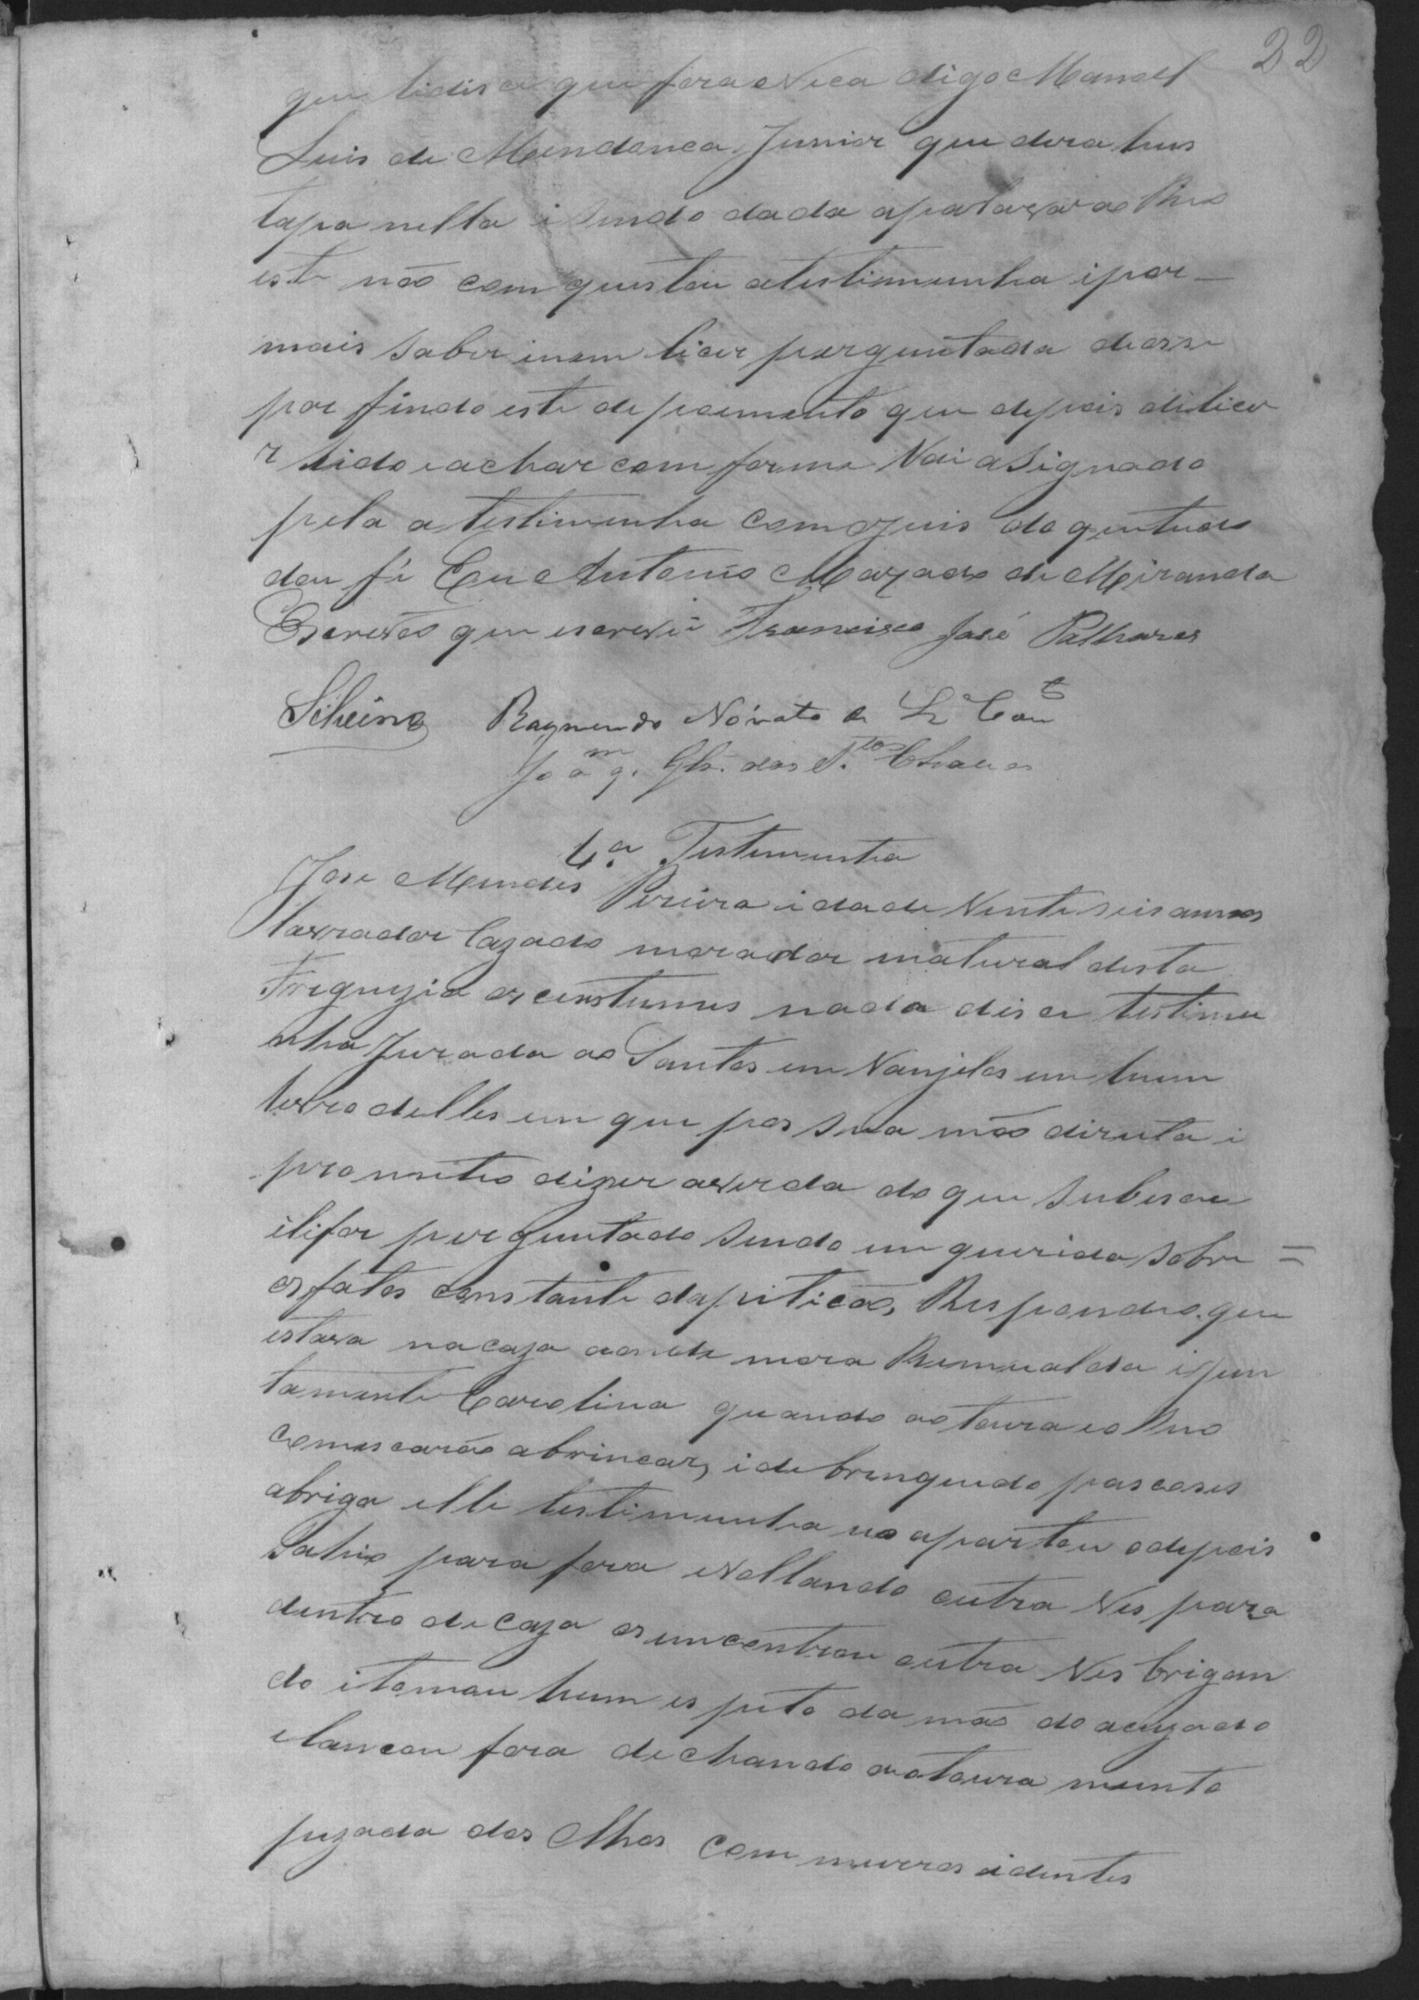 22
que lidisce que fora Neca digo Manoel
Luis de Mendonca Junior que dera huns
tapa nella i sendo dada apalavra ao Reo
este não comquestou atestimunha ipor
mais saber inem licer perguntada deosse
por findo este depoimento que depois dilicer
r lido eachar comforme Vai asignado
pela a testimunha comojuis do que tudo
dou fé Eu Antonio Marzacão de Miranda
Escrivão que escreviu Francisco José Palhares
Silvino Raymundo Nónato de
Joaqm. dos S.tos Chaves
4.a Testimunha
Jose Mendes Pereira idade Vinte seis annos
larrador Cazado morador inatural desta
Freguzia oscustumes nada disce testimu
nha Jurada ao Santos em Vanjelos em hum
livro delles em que pos sua mão direita i
prometio dizer averda do que subesce
ilifor perguntado sendo inquerido sobre =
os fatos constante dapiticão, Respondeo que
estava nacaza aonde mora Rumualda ijun
tamente Carolina quando aotoura eo Reo
comescarão abrincar, i de brinquedo pascoses
abriga elle testimunha us apartou edepois
Sahio para fora eVollando outra Ves para
dentro de caza os emcontrou outra Ves brigan
do itomou hum espeto da mão do acuzado
elancou fora dechando aotoura muinto
puzada dos Olhos com murros identes